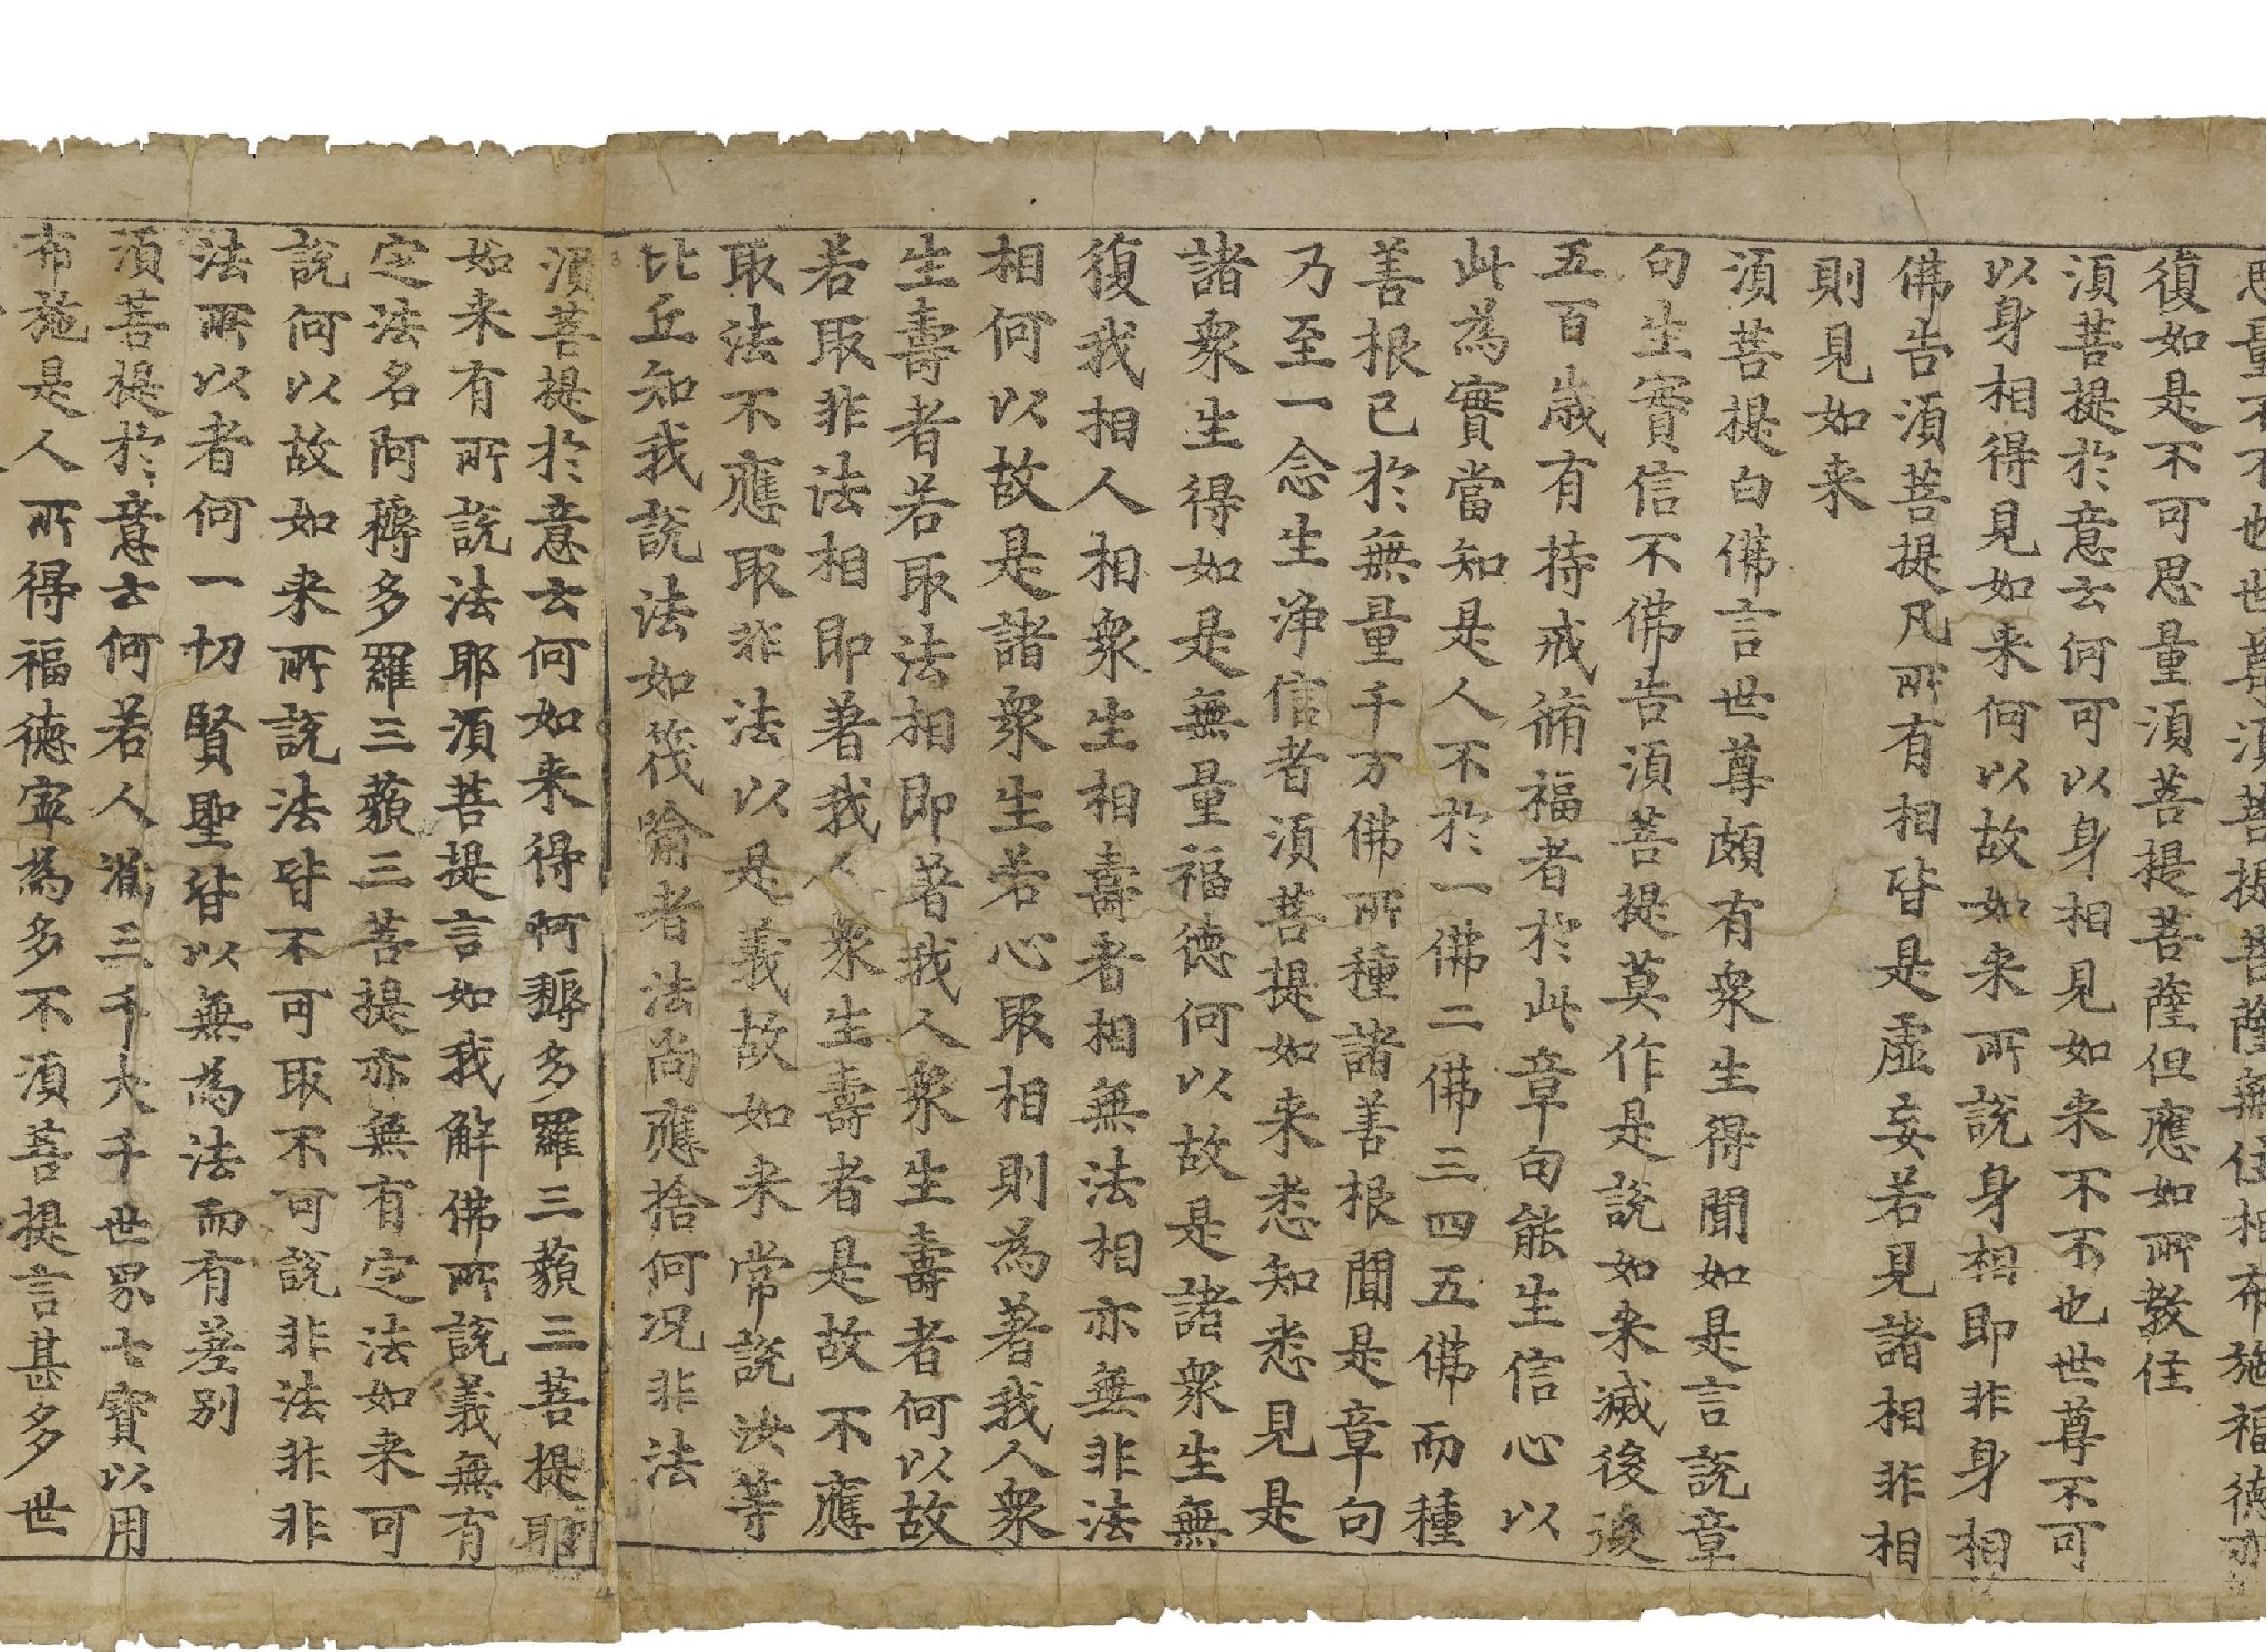 思量不不也世尊須菩提菩薩無住相布施福德亦
復如是不可思量須菩提菩薩但應如所教住
須菩提於意云何可以身相見如来不不也世尊不可
以身相得見如来何以故如来所說身相即非身相
佛告須菩提凡所有相皆是虛妄若見諸相非相
則見如来
須菩提白佛言世尊頗有衆生得聞如是言說章
句生實信不佛告須菩提莫作是說如来滅後後
五百歲有持戒脩福者於此章句能生信心以
此為實當知是人不於一佛二佛三四五佛而種
善根已於無量千万佛所種諸善根聞是章句
乃至一念生淨信者須菩提如来悉知悉見是
諸衆生得如是無量福德何以故是諸衆生無
復我相人相衆生相壽者相無法相亦無非法
相何以故是諸衆生若心取相則為著我人衆
生壽者若取法相即著我人衆生壽者何以故
若取非法相即著我人衆生壽者是故不應
取法不應取非法以是義故如来常說汝等
比丘知我說法如筏喻者法尚應捨何況非法
須菩提於意云何如来得阿耨多羅三藐三菩提耶
如来有所說法耶須菩提言如我解佛所說義無有
定法名阿耨多羅三藐三菩提亦無有定法如来可
說何以故如来所說法皆不可取不可說非法非非
法所以者何一切賢聖皆以無為法而有差別
須菩提於意云何若人滿三千大千世界七寶以用
布施是人所得福德寧為多不須菩提言甚多世